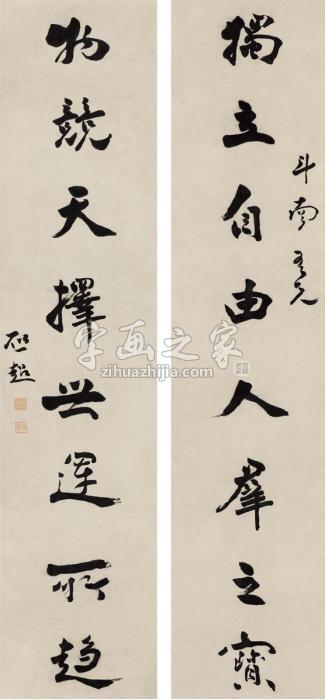 獨立自由人羣之寶
斗南吾兄
物競天擇世運所趨
啟超
字画之家
zihuazhijia.com